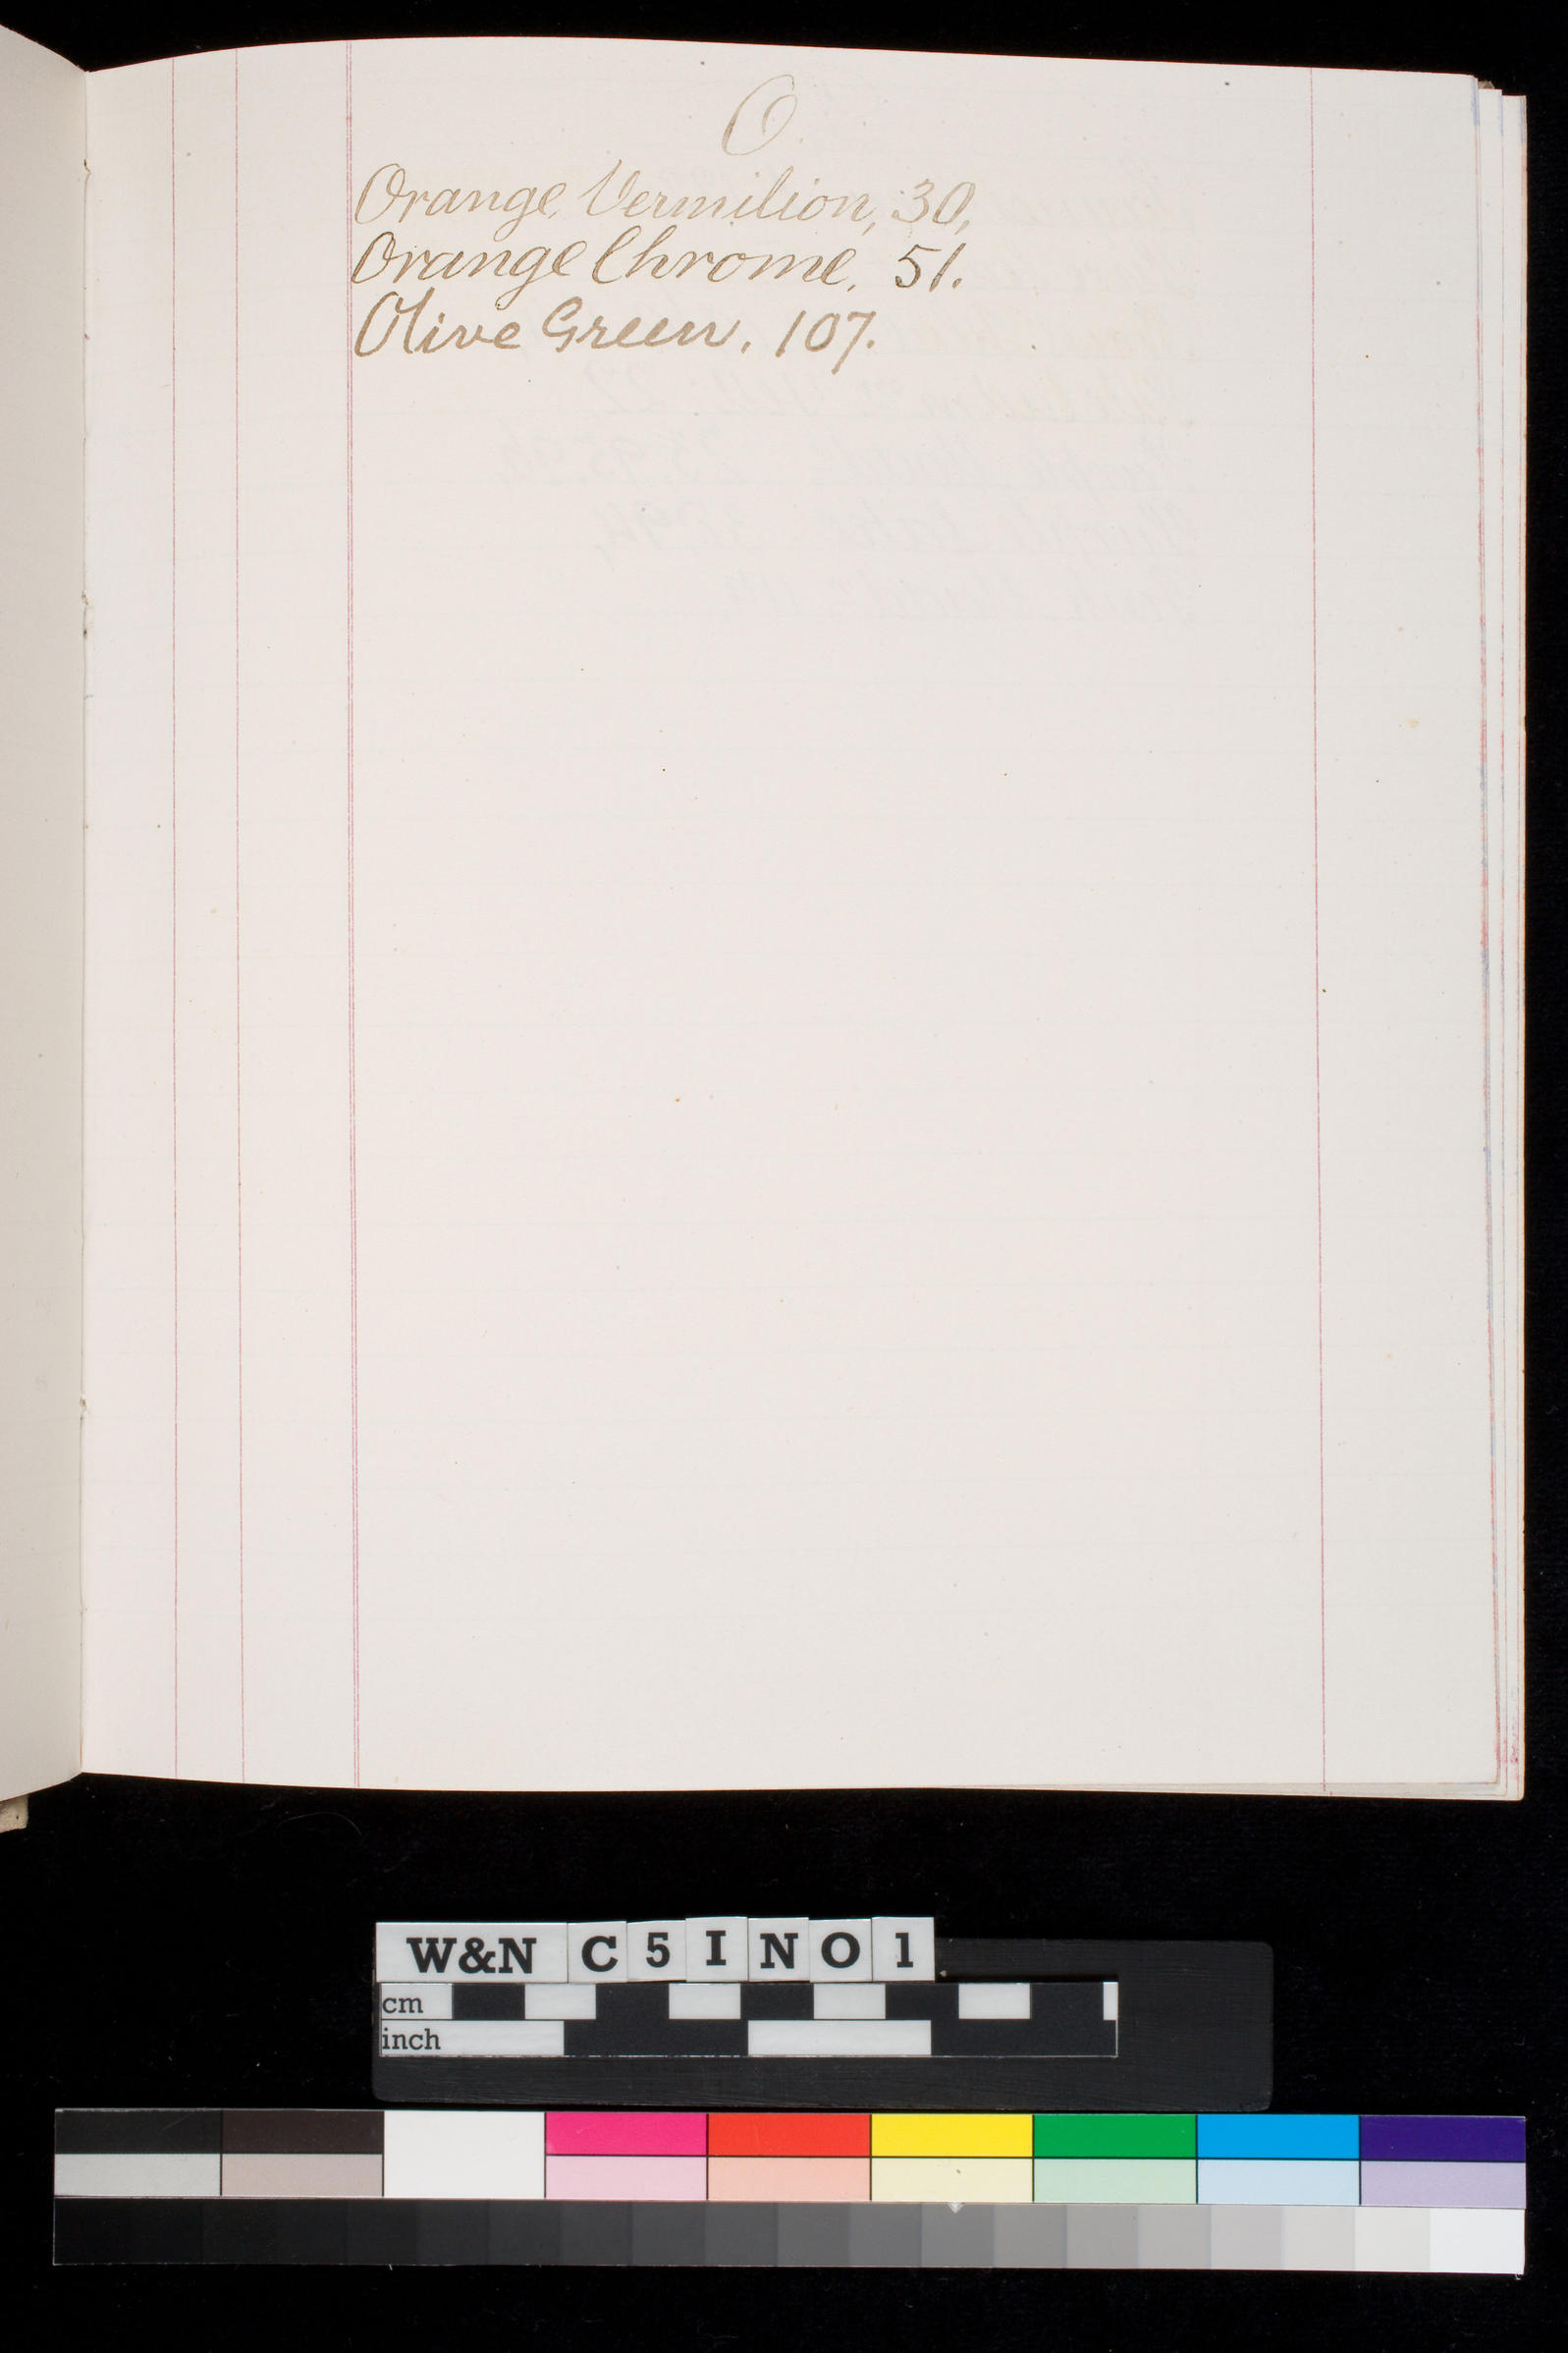 O
Orange Vermilion, 30,
Orange Chrome, 51.
Olive Green, 107.
W&N C 5 I N O 1
cm
inch